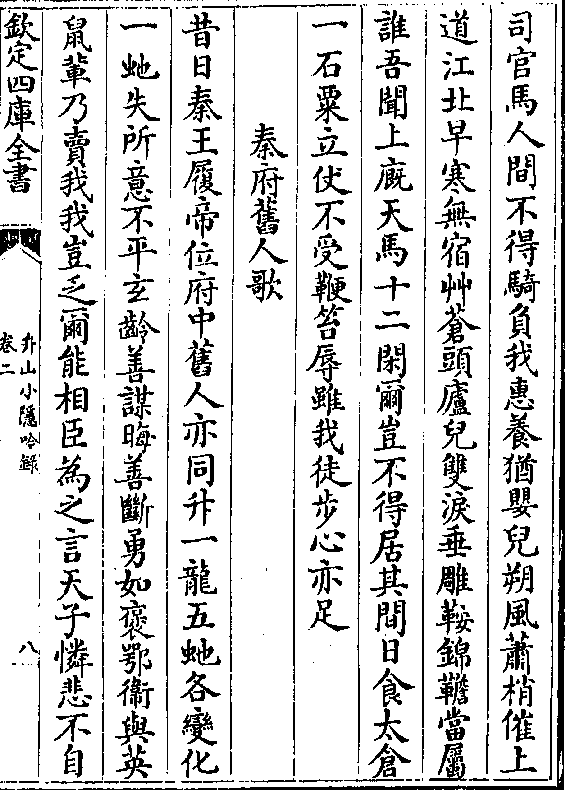 司官馬人間不得騎負我惠養猶嬰兒朔風蕭梢催上
道江北早寒無宿艸蒼頭廬兒雙淚垂雕鞍錦韂當屬
誰吾聞上廐天馬十二閑爾豈不得居其間日食太倉
一石粟立仗不受鞭笞辱雖我徒步心亦足
秦府舊人歌
昔日秦王履帝位府中舊人亦同升一龍五虵各變化
一虵失所意不平玄齡善謀晦善斷勇如褒鄂衞與英
鼠輩乃賣我我豈乏爾能相臣為之言天子憐悲不自
欽定四庫全書
弁山小隱吟錄
卷二
八